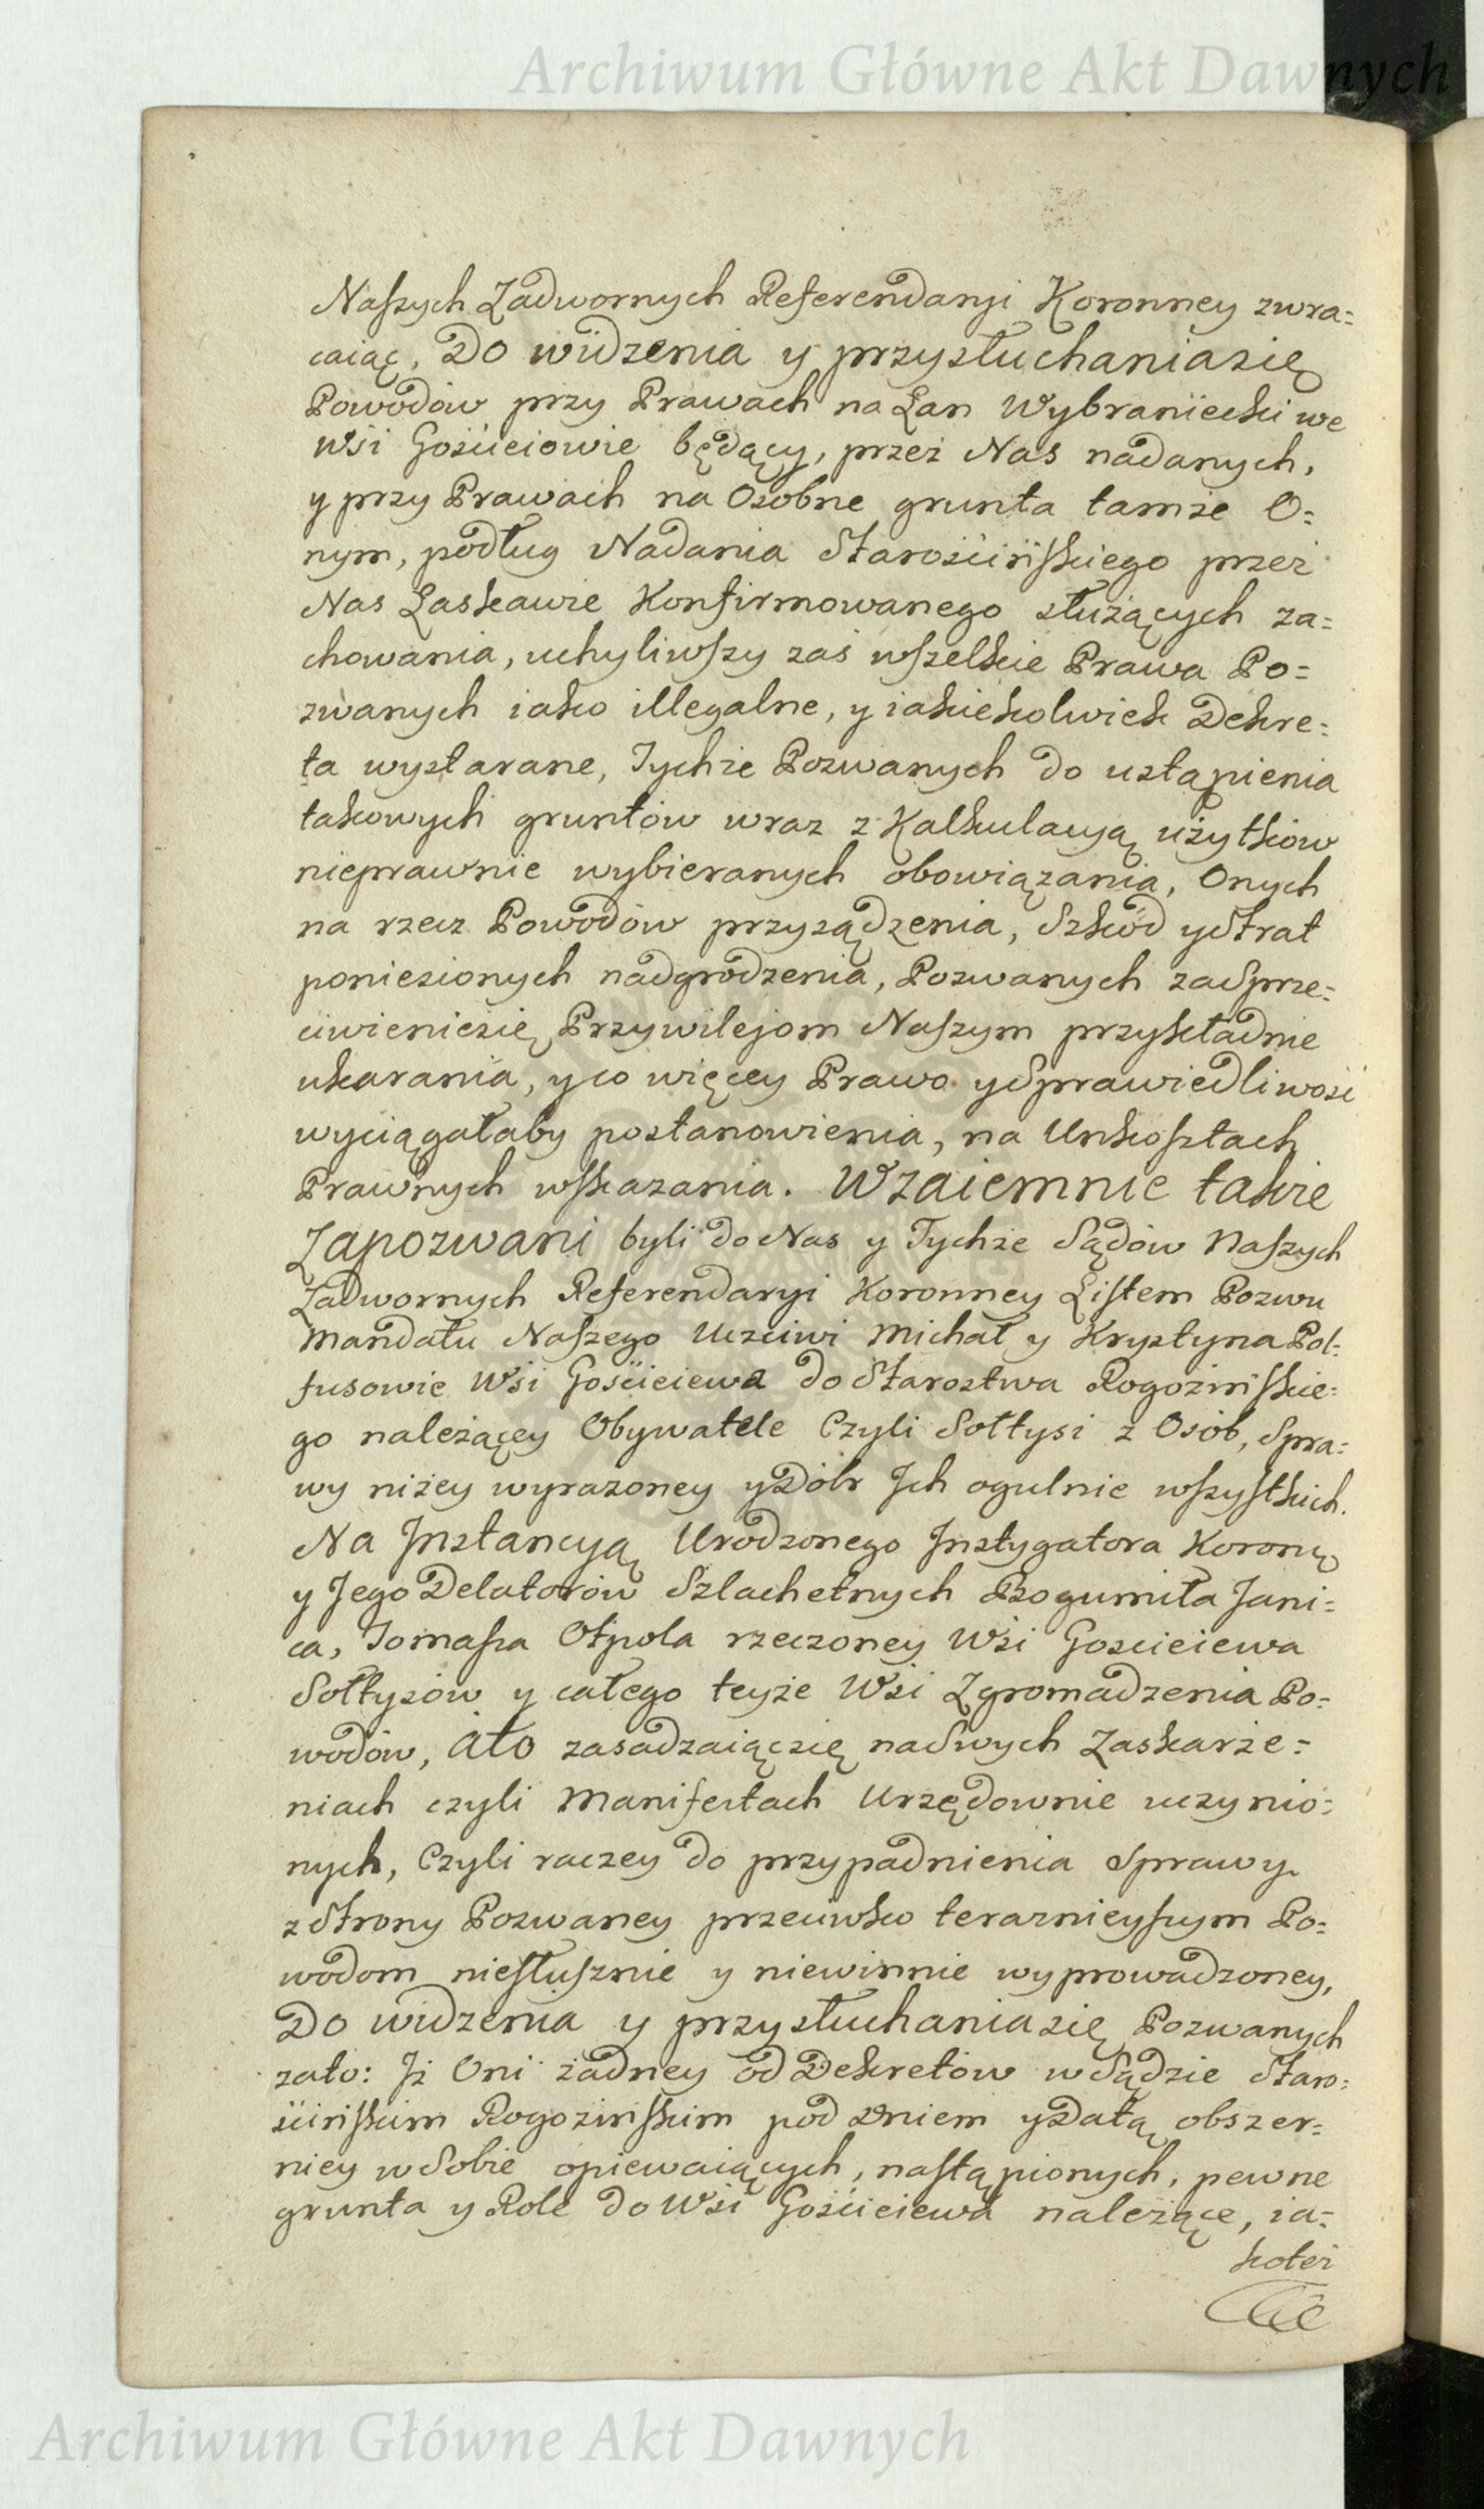 Archiwum Główne Akt Dawnych
Naszych Zadwornych Referendaryi Koronney zwra=
caiąc, Do widzenia y przysłuchania się
Powodow przy Prawach na Łan Wybraniecki we
Wsi Gościeiowie będący, przez Nas nadanych,
y przy Prawach na Osobne grunta tamże O=
nym, podług Nadania Starościńskiego przez
Nas Łaskawie Konfirmowanego służących za=
chowania, uchyliwszy zaś wszelkie Prawa Po=
zwanych iako illegalne, y iakiekolwiek Dekre=
ta wystarane, Tychże Pozwanych do ustąpienia
takowych gruntów wraz z Kalkulacyą użytków
nieprawnie wybieranych obowiązania, Onych
na rzecz Powodów przysądzenia, Szkód y Strat
poniesionych nadgrodzenia, Pozwanych za Sprze=
ciwienie się Przywilejom Naszym przykładnie
ukarania, y co więcey Prawo y Sprawiedliwość
wyciągałaby postanowienia, na Unkosztach
Prawnych wskazania. Wzaiemnie także
Zapozwani byli do Nas y Tychże Sądów Naszych
Zadwornych Referendaryi Koronney Listem Pozwu
Mandatu Naszego Uczciwi Michał y Krystyna Pol=
fusowie Wsi Gościeiewa do Starostwa Rogozińskie=
go należącey Obywatele Czyli Sołtysi z Osób, Spra=
wy niżey wyrazoney y Dóbr Jch ogulnie wszystkich.
Na Jnstancyą Urodzonego Jnstygatora Koronę
y Jego Delatorów Szlachetnych Bogumiła Jani=
ca, Tomasza Otpola rzeczoney Wsi Gościeiewa
Sołtysów y całego teyże Wsi Zgromadzenia Po=
wodów, Ato zasadzaiąc się na Swych Zaskarże=
niach czyli Manifestach Urzędownie uczynio=
nych, Czyli raczey do przypadnienia Sprawy
z Strony Pozwaney przeciwko teraznieyszym Po=
wodom niesłusznie y niewinnie wyprowadzoney,
Do widzenia y przysłuchania się Pozwanych
zato: Jż Oni żadney od Dekretów w Sądzie Staro=
ścińskim Rogozińskim pod dniem y Datą obszer=
niey w Sobie opiewaiących, nastąpionych, pewne
grunta y Role do Wsi Gościeiewa należące, ia=
koteż
Archiwum Główne Akt Dawnych